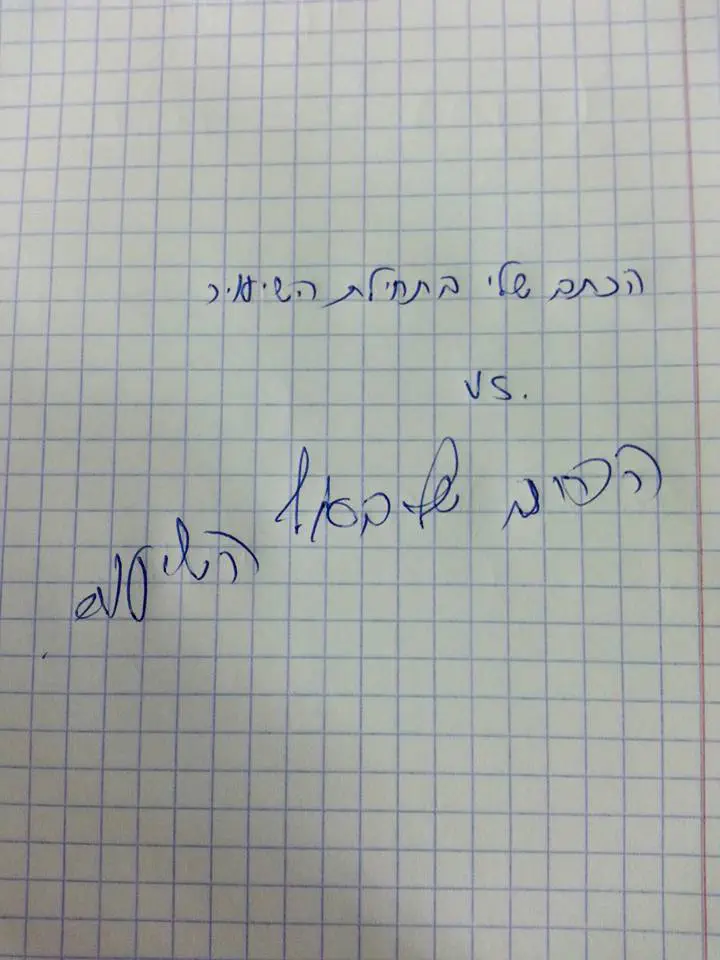 הכתב שלי בתחילת השיעור
vs.
הכתב שלי בסוף
השיעור